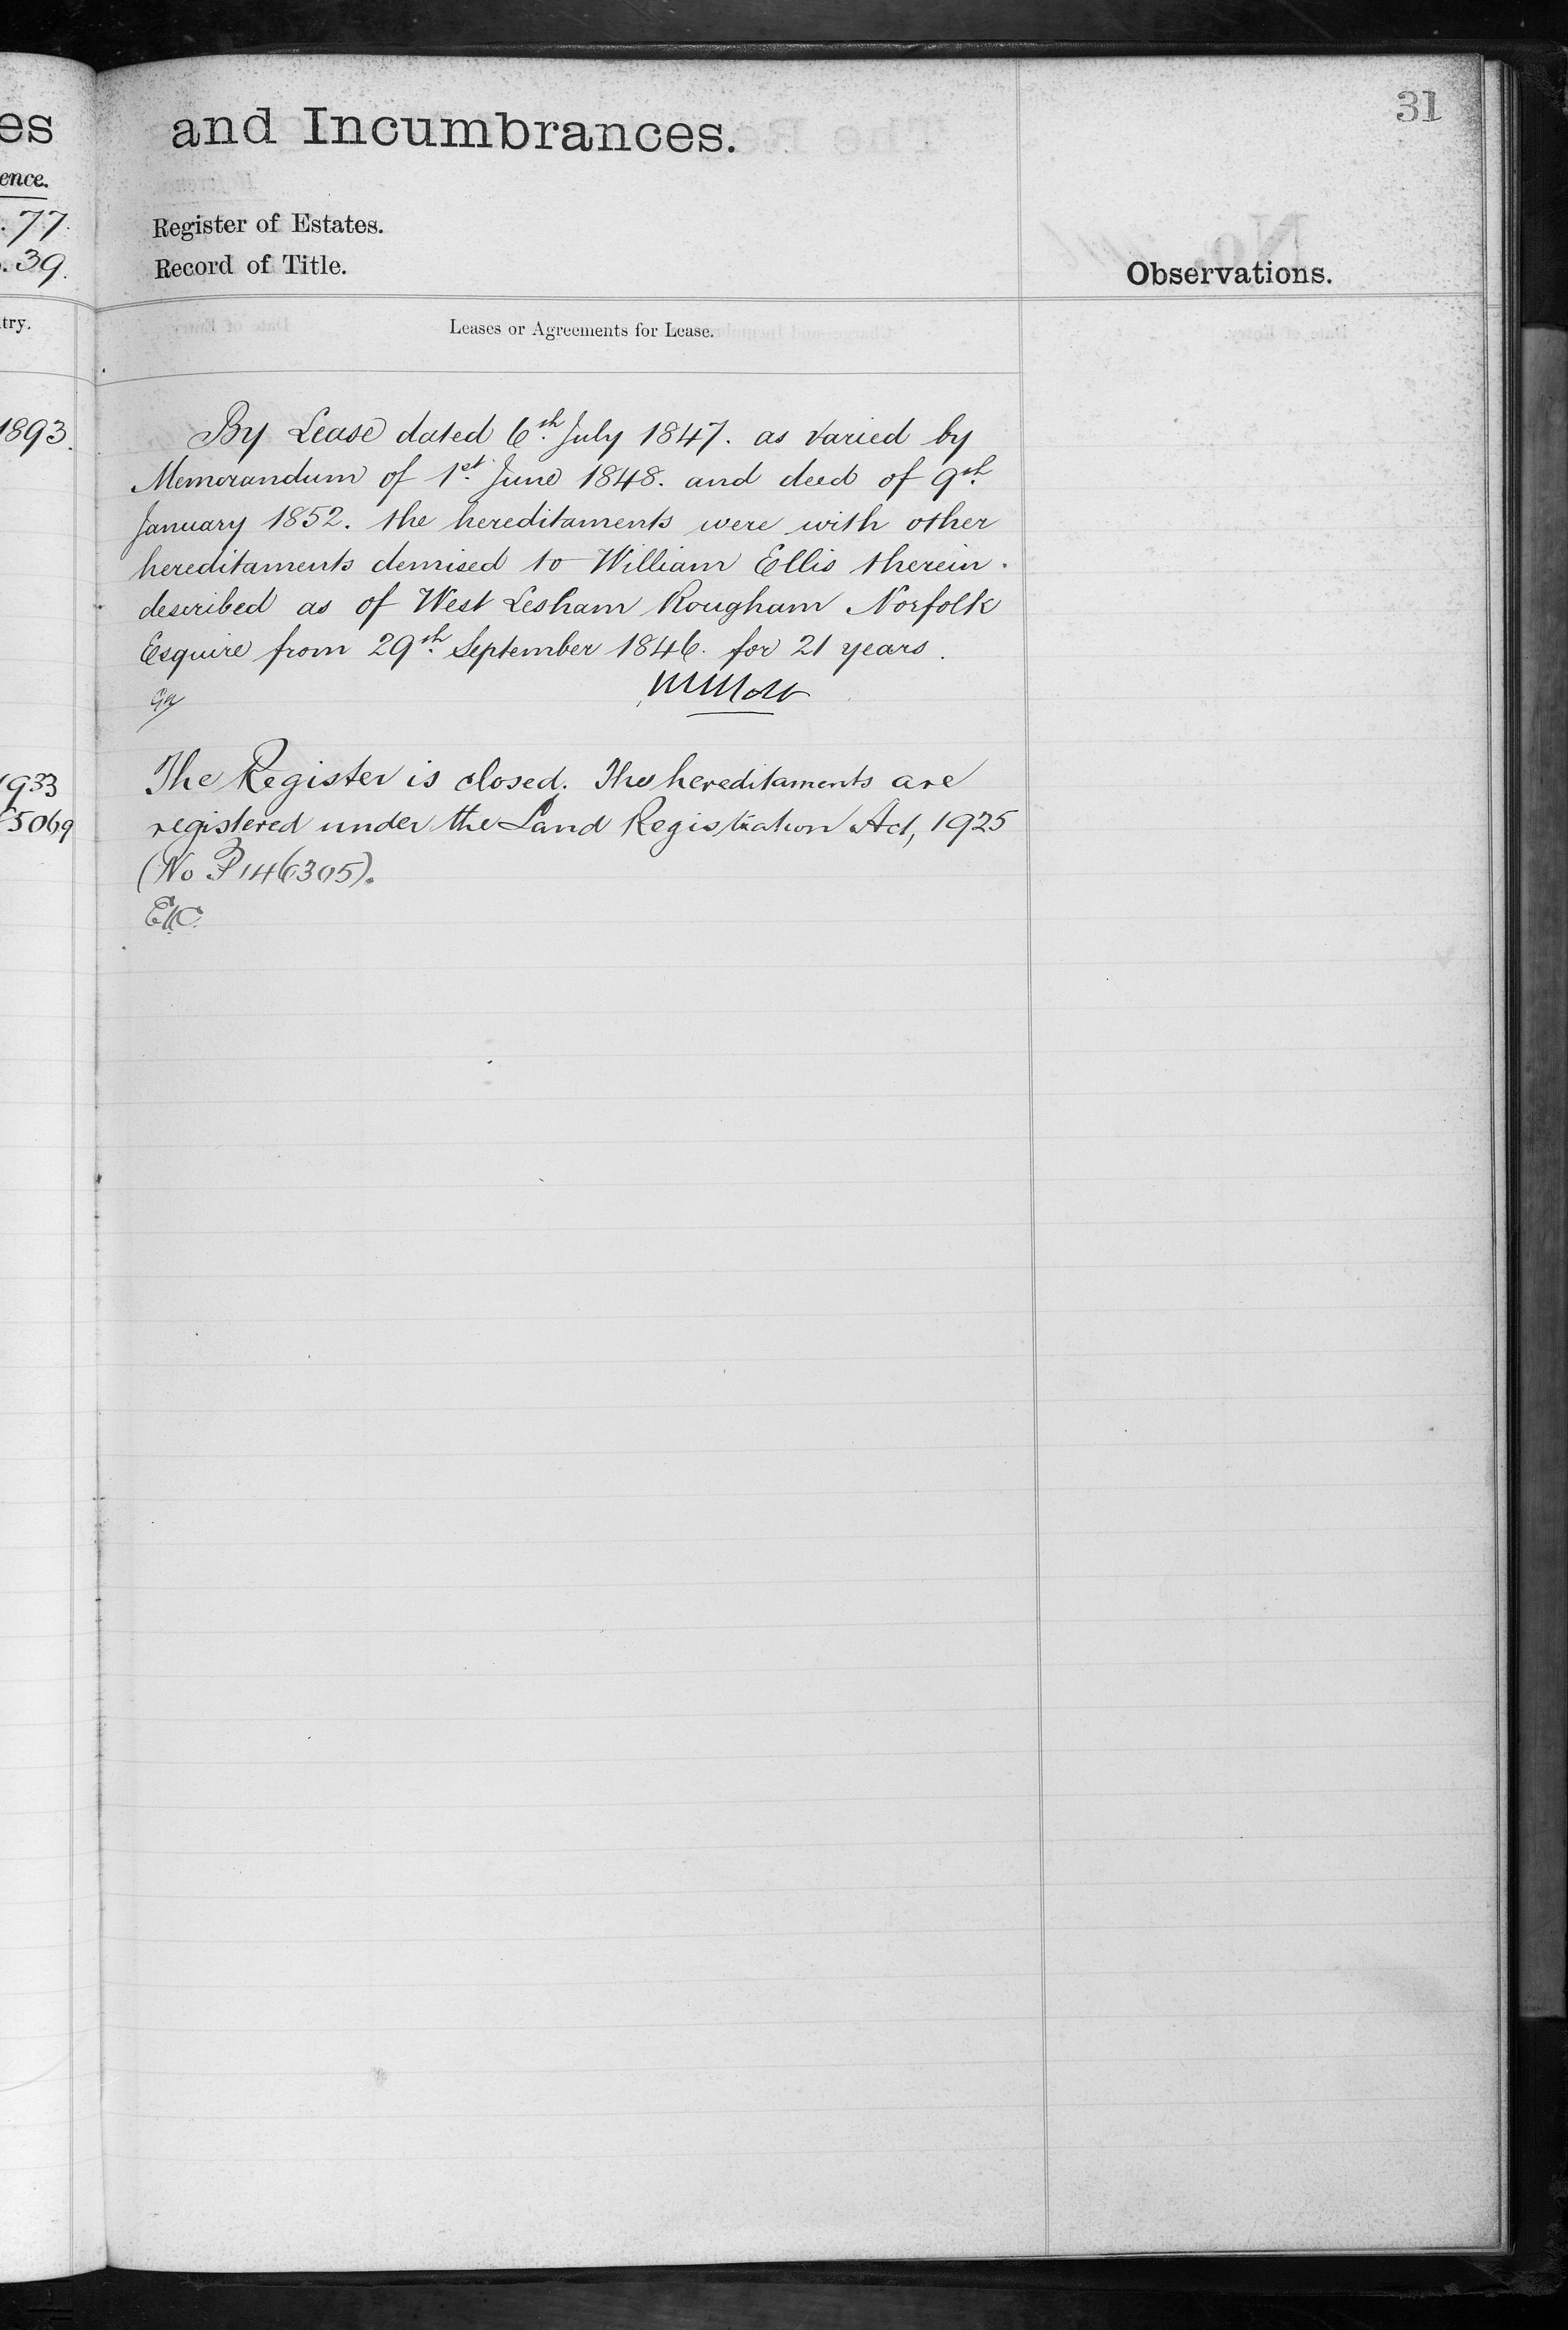 es
ence.
. 77.
. 39.
try.
1893.
1933
5069
and Incumbrances.
31
Register of Estates.
Record of Title.
Observations.
Leases or Agreements for Lease.
By Lease dated 6th July 1847. as varied by
Memorandum of 1st June 1848. and deed of 9th
January 1852. the hereditaments were with other
hereditaments demised to William Ellis therein.
described as of West Lesham Rougham Norfolk
Esquire from 29th September 1846. for 21 years.
The Register is closed. The hereditaments are
registered under the Land Registration Act, 1925
(No P146305).